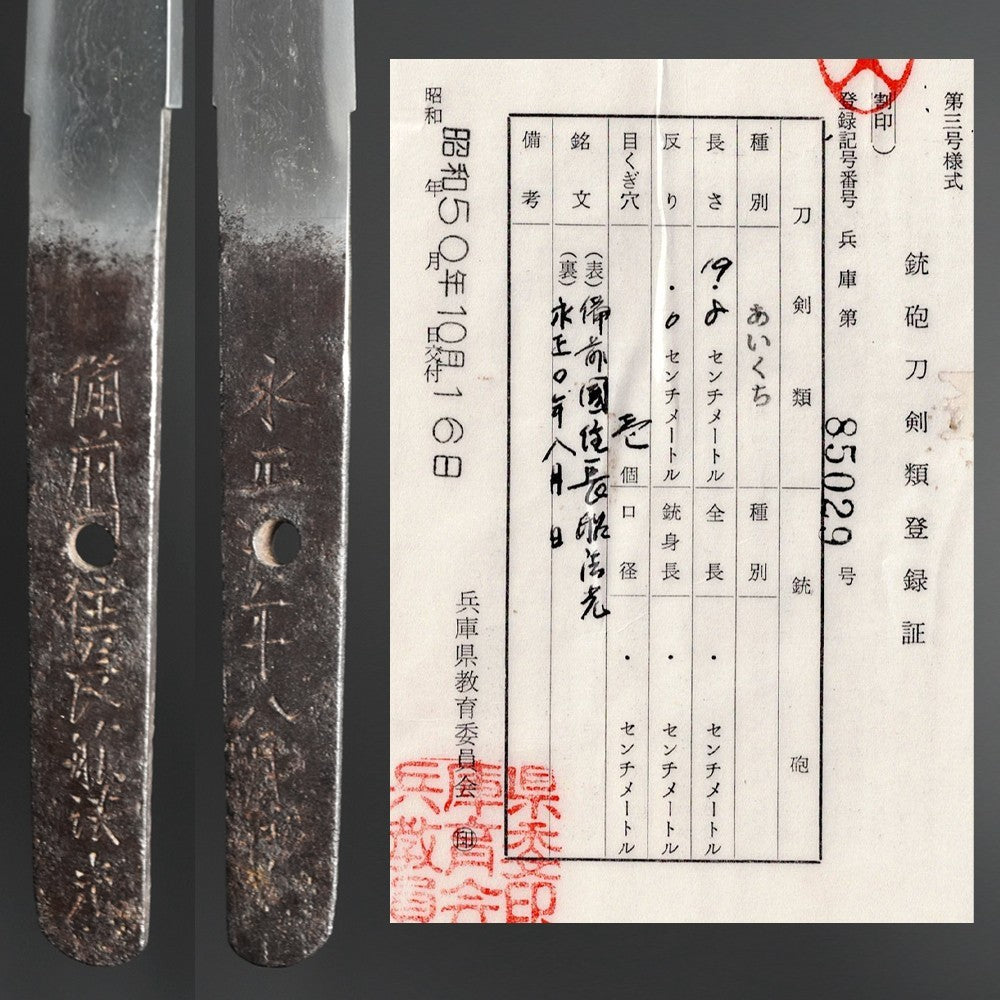 備前国住長船法光
永正 年八月日
第三号様式
銃砲刀剣類登録証
割印）
登録記号番号 兵庫第 85029 号
刀剣類
銃砲
種別 あいくち
種別
長さ 19.8 センチメートル
全長 . センチメートル
反り .0 センチメートル
銃身長 . センチメートル
目くぎ穴 壱個
口径 センチメートル
銘文
（表）備前國住長船法光
（裏）永正〇年八月日
備考
昭和 年 月 日交付
昭和50年10月16日
兵庫県教育委員会 ㊞